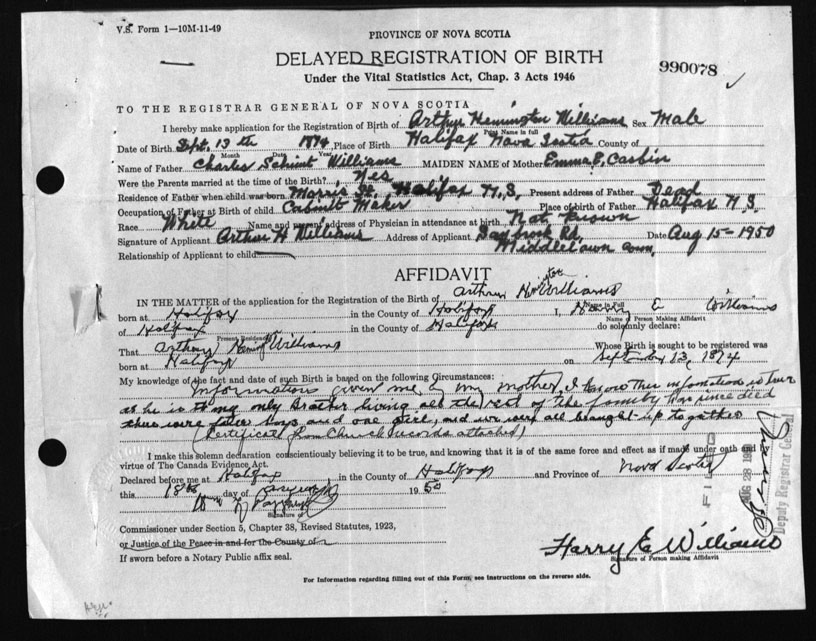 V.S. Form 1—10M-11-49
PROVINCE OF NOVA SCOTIA
DELAYED REGISTRATION OF BIRTH
Under the Vital Statistics Act, Chap. 3 Acts 1946
990078
TO THE REGISTRAR GENERAL OF NOVA SCOTIA
I hereby make application for the Registration of Birth of Arthur Hemington Williams Sex Male
Print Name in full
Date of Birth Sept. 13th 1874 Place of Birth Halifax Nova Scotia County of
Month Day Year
Name of Father Charles Williams MAIDEN NAME of Mother Emma E.
Were the Parents married at the time of the Birth? Yes
Residence of Father when child was born Morris St. Halifax N.S. Present address of Father Dead
Occupation of Father at Birth of child Cabinet Maker Place of birth of Father Halifax N S.
Race White Name and present address of Physician in attendance at birth Not known
Signature of Applicant Arthur H Williams Address of Applicant Saybrook Rd, Date Aug 15-1950
Middletown Conn.
Relationship of Applicant to child
AFFIDAVIT
IN THE MATTER of the application for the Registration of Birth of Arthur Williams
Name in Full
born at Halifax in the County of Halifax I, Harry E Williams
Name of Person Making Affidavit
of Halifax in the County of Halifax do solemnly declare:
Present Residence
That Arthur Williams Whose Birth is sought to be registered was
born at Halifax on September 13, 1874
My knowledge of the fact and date of such Birth is based on the following Circumstances:
Information given me by my mother, I know this information is true
as he is my only Brother living and the rest of the family has since died
there were four boys and one girl, and we were all brought up together
(Certificate from Church records attached)
I make this solemn declaration conscientiously believing it to be true, and knowing that it is of the same force and effect as if made under oath and by
virtue of The Canada Evidence Act.
Declared before me at Halifax in the County of Halifax and Province of Nova Scotia
this 18th day of August 1950
Signature of
Commissioner under Section 5, Chapter 38, Revised Statutes, 1923,
or Justice of the Peace in and for the County of
If sworn before a Notary Public affix seal.
Harry E Williams
Signature of Person making Affidavit
For Information regarding filling out of this Form, see instructions on the reverse side.
FILED
AUG 28 1950
Deputy Registrar General